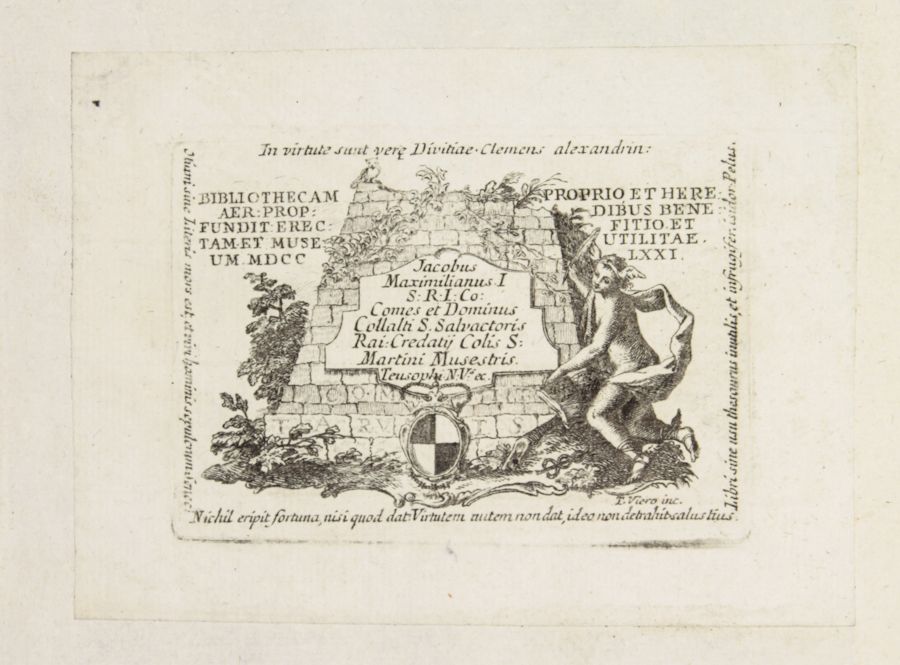 In virtute sunt verę Divitiae. Clemens alexandrin:
BIBLIOTHECAM
AER: PROP:
FUNDIT: EREC:
TAM ET MUSE:
UM. MDCC
PROPRIO ET HERE:
DIBUS BENE
FITIO. ET
UTILITAE.
LXXI.
Jacobus
Maximilianus I
S: R: I: Co:
Comes et Dominus
Collalti S. Salvactoris
Rai: Credatij Colis S:
Martini Musestris.
Teusophi N. V.s &c.
F. Viero inc.
Nichil eripit fortuna, nisi quod dat: Virtutem autem non dat, ideo non detrahit. salustius.
sine literis mors est, et vivi hominis sepultura
Libri sine usu thesaurus inutilis, et infrugifer. isidor Pelus.